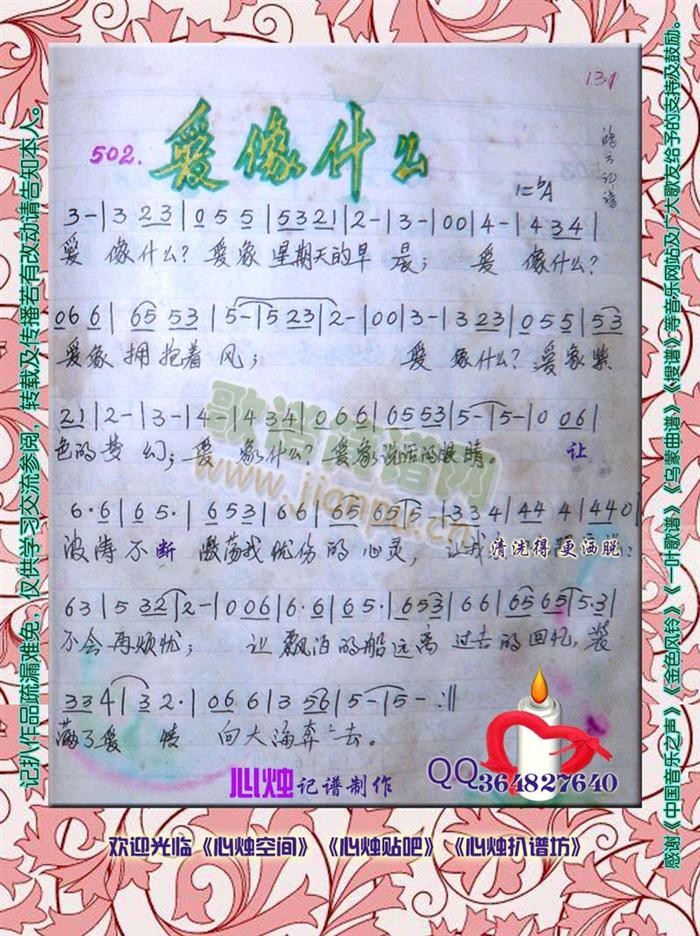 131
502. 爱像什么
1=bA
3-|3 23|0 5 5|5321|2-|3-|00|4-|4 34|
爱 像什么？爱象星期天的早晨；爱 像什么？
066|65 53|5-|523|2-|00|3-|3 23|055|53
爱象拥抱着风； 爱 象什么？爱象紫
21|2-|3-|4-|4 34|066|6553|5-|5-|0 06|
色的梦幻；爱 象什么？爱象说话的眼睛。 让
6·6|65·|653|66|65 65|5-|33 4|44 4|440|
波涛不断 激荡我忧伤的心灵，让我清洗得更洒脱
63|5 32|2-|006|6·6|65·|653|66|65 65|5·3|
不会再烦忧； 让飘泊的船远离过去的回忆，装
33 4|3 2·|06 6|3 56|5-|5-:||
满了爱 情 向大海奔去。
心烛记谱制作 QQ364827640
欢迎光临《心烛空间》《心烛贴吧》《心烛扒谱坊》
记扒作品疏漏难免，仅供学习交流参阅，转载及传播若有改动请告知本人。
感谢《中国音乐之声》《金色风铃》《一叶歌谱》《乌蒙曲谱》《搜谱》等音乐网站及广大歌友给予的支持及鼓励。
歌谱简谱网
www.jianpu.cn